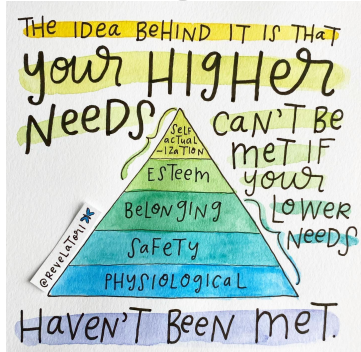 THE IDEA BEHIND IT IS THAT
YOUR HIGHER
NEEDS
CAN'T BE
MET IF
YOUR
LOWER
NEEDS
SELF
ACTUAL
-IZATION
ESTEEM
BELONGING
SAFETY
PHYSIOLOGICAL
@REVELATORI
HAVEN'T BEEN MET.